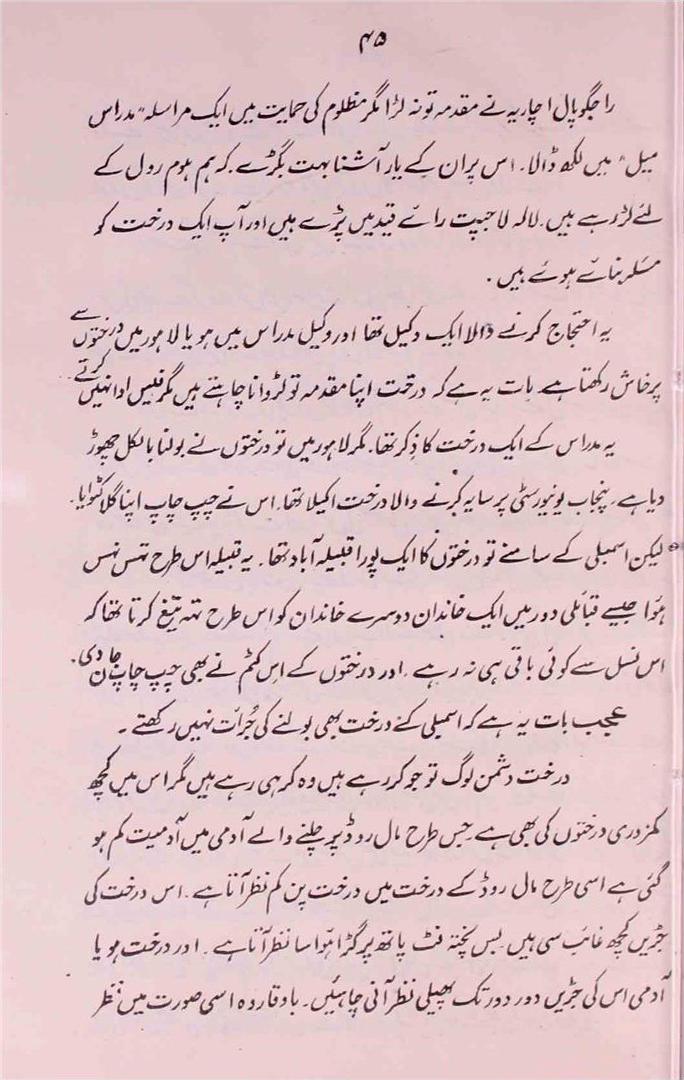 ۴۵
راجگوپال اچاریہ نے مقدمہ تو نہ لڑا مگر مظلوم کی حمایت میں ایک مراسلہ "مدراس
میل" میں لکھ ڈالا۔ اس پر ان کے یار آشنا بہت بگڑے۔ کہ ہم ہوم رول کے
لئے لڑ رہے ہیں۔ لالہ لاجپت رائے قید میں پڑے ہیں اور آپ ایک درخت کو
مسئلہ بنائے ہوئے ہیں۔
یہ احتجاج کرنے والا ایک وکیل تھا اور وکیل مدراس میں ہو یا لاہور میں درختوں سے
پرخاش رکھتا ہے۔ بات یہ ہے کہ درخت اپنا مقدمہ تو لڑوانا چاہتے ہیں مگر فیس ادا نہیں کرتے
یہ مدراس کے ایک درخت کا ذکر تھا۔ مگر لاہور میں تو درختوں نے بولنا بالکل چھوڑ
دیا ہے۔ پنجاب یونیورسٹی پر سایہ کرنے والا درخت اکیلا تھا۔ اس نے چپ چاپ اپنا گلا کٹوایا۔
لیکن اسمبلی کے سامنے تو درختوں کا ایک پورا قبیلہ آباد تھا۔ یہ قبیلہ اس طرح تہس نہس
ہوا جیسے قبائلی دور میں ایک خاندان دوسرے خاندان کو اس طرح تہہ تیغ کرتا تھا کہ
اس نسل سے کوئی باقی ہی نہ رہے۔ اور درختوں کے اس کٹم نے بھی چپ چاپ جان دی۔
عجب بات یہ ہے کہ اسمبلی کے درخت بھی بولنے کی جُرأت نہیں رکھتے۔
درخت دشمن لوگ تو جو کر رہے ہیں وہ کر ہی رہے ہیں مگر اس میں کچھ
کمزوری درختوں کی بھی ہے۔ جس طرح مال روڈ پر چلنے والے آدمی میں آدمیت کم ہو
گئی ہے اسی طرح مال روڈ کے درخت میں درخت پن کم نظر آتا ہے۔ اس درخت کی
جڑیں کچھ غائب سی ہیں۔ بس پختہ فٹ پاتھ پر گڑا ہوا سا نظر آتا ہے۔ اور درخت ہو یا
آدمی اس کی جڑیں دور دور تک پھیلی نظر آنی چاہئیں۔ باوقار وہ اسی صورت میں نظر